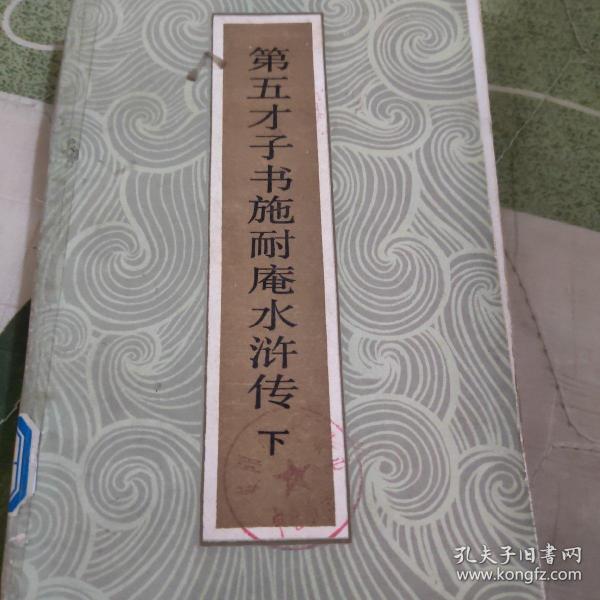 第五才子书施耐庵水浒传 下
孔夫子旧書网
www.kongfz.com